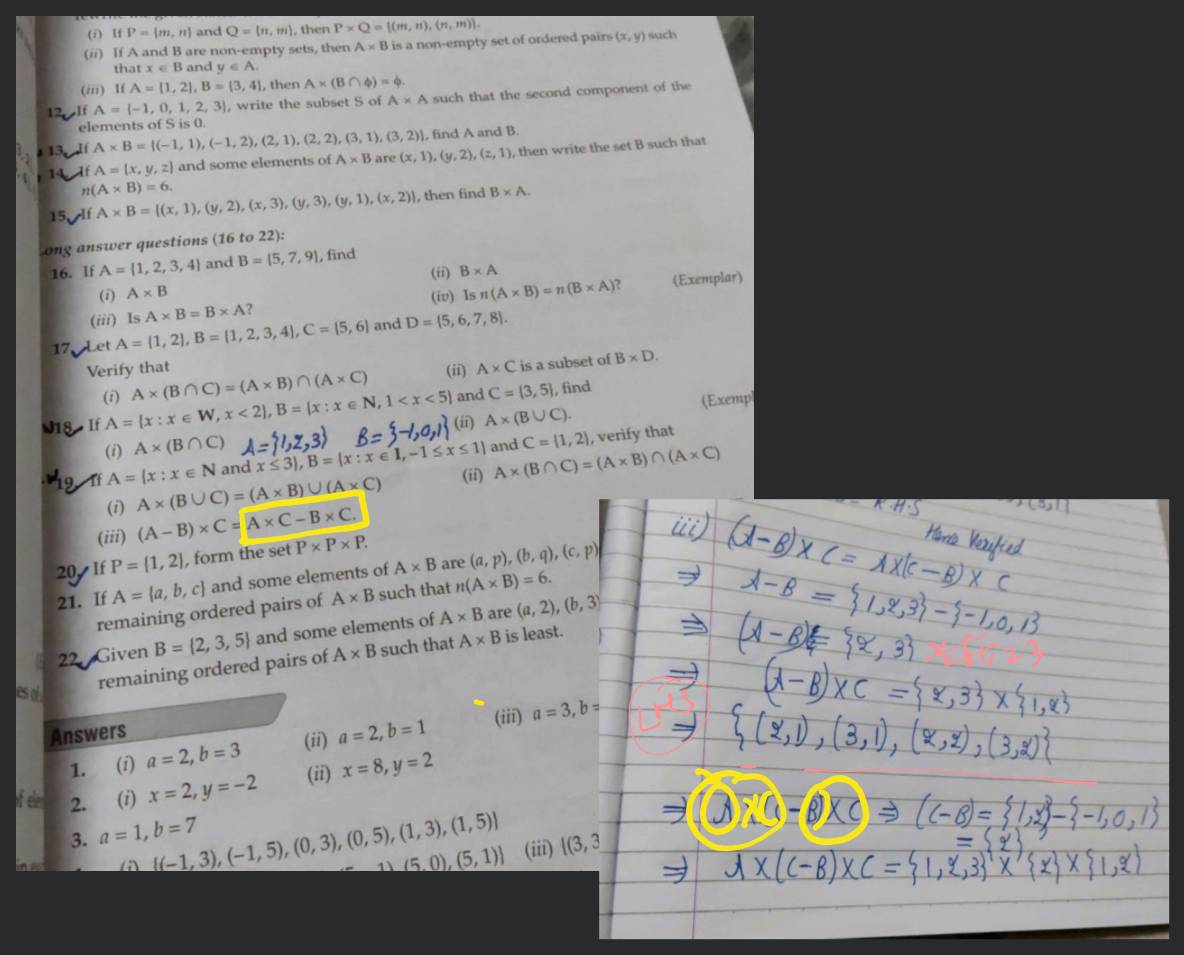 (i) If P = {m, n} and Q = {n, m}, then P × Q = {(m, n), (n, m)}.
(ii) If A and B are non-empty sets, then A × B is a non-empty set of ordered pairs (x, y) such
that x ∈ B and y ∈ A.
(iii) If A = {1, 2}, B = {3, 4}, then A × (B ∩ ϕ) = ϕ.
12. If A = {–1, 0, 1, 2, 3}, write the subset S of A × A such that the second component of the
elements of S is 0.
13. If A × B = {(–1, 1), (–1, 2), (2, 1), (2, 2), (3, 1), (3, 2)}, find A and B.
14. If A = {x, y, z} and some elements of A × B are (x, 1), (y, 2), (z, 1), then write the set B such that
n(A × B) = 6.
15. If A × B = {(x, 1), (y, 2), (x, 3), (y, 3), (y, 1), (x, 2)}, then find B × A.
ong answer questions (16 to 22):
16. If A = {1, 2, 3, 4} and B = {5, 7, 9}, find
(i) A × B (ii) B × A
(iii) Is A × B = B × A? (iv) Is n(A × B) = n(B × A)? (Exemplar)
17. Let A = {1, 2}, B = {1, 2, 3, 4}, C = {5, 6} and D = {5, 6, 7, 8}.
Verify that
(i) A × (B ∩ C) = (A × B) ∩ (A × C) (ii) A × C is a subset of B × D.
18. If A = {x : x ∈ W, x < 2}, B = {x : x ∈ N, 1 < x < 5} and C = {3, 5}, find (Exempl
(i) A × (B ∩ C) A={1,2,3} B={-1,0,1} (ii) A × (B ∪ C).
19. If A = {x : x ∈ N and x ≤ 3}, B = {x : x ∈ I, –1 ≤ x ≤ 1} and C = {1, 2}, verify that
(i) A × (B ∪ C) = (A × B) ∪ (A × C) (ii) A × (B ∩ C) = (A × B) ∩ (A × C)
(iii) (A – B) × C = A × C – B × C.
20. If P = {1, 2}, form the set P × P × P.
21. If A = {a, b, c} and some elements of A × B are (a, p), (b, q), (c, p)
remaining ordered pairs of A × B such that n(A × B) = 6.
22. Given B = {2, 3, 5} and some elements of A × B are (a, 2), (b, 3)
remaining ordered pairs of A × B such that A × B is least.
Answers
1. (i) a = 2, b = 3 (ii) a = 2, b = 1 (iii) a = 3, b =
2. (i) x = 2, y = –2 (ii) x = 8, y = 2
3. a = 1, b = 7
(i) {(–1, 3), (–1, 5), (0, 3), (0, 5), (1, 3), (1, 5)}
1) (5, 0), (5, 1)} (iii) {(3, 3
= R.H.S
Hence Verified
iii) (A-B)×C = A×(C-B)×C
⇒ A-B = {1,2,3}-{-1,0,1}
⇒ (A-B) = {2,3}
⇒ (A-B)×C = {2,3}×{1,2}
LHS
⇒ {(2,1),(3,1),(2,2),(3,2)}
⇒ A×(C-B)×C ⇒ (C-B)={1,2}-{-1,0,1}
= {2}
⇒ A×(C-B)×C = {1,2,3}×{2}×{1,2}